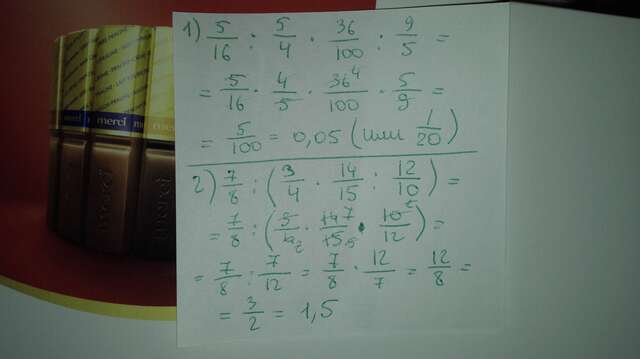 merci
merci
1) 5/16 : 5/4 · 36/100 : 9/5 =
= 5/16 · 4/5 · 36⁴/100 · 5/9 =
= 5/100 = 0,05 (или 1/20)
2) 7/8 : (3/4 · 14/15 : 12/10) =
= 7/8 : (3/4₂ · 14⁷/15₅ · 10²/12) =
= 7/8 : 7/12 = 7/8 · 12/7 = 12/8 =
= 3/2 = 1,5